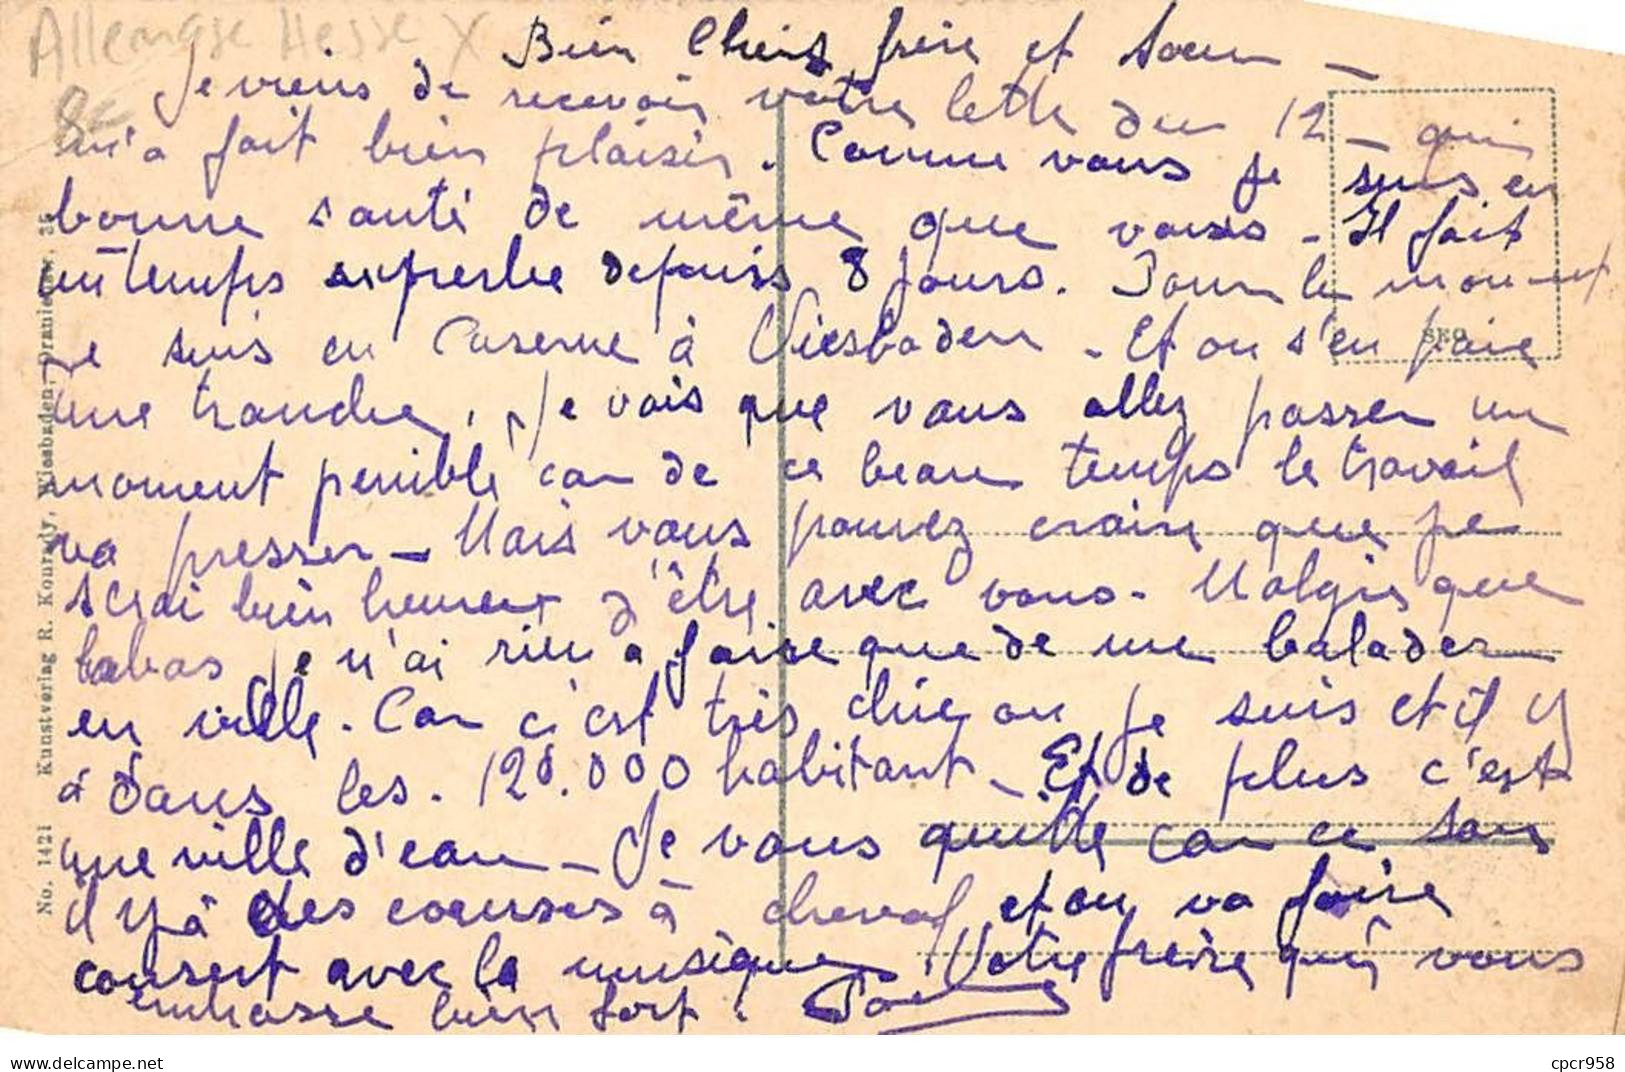 Allemagne Hesse X
8€
Bien Chers frère et soeur -
Je viens de recevoir votre lettre du 12 - qui
m'a fait bien plaisir. Comme vous je suis en
bonne santé de même que vous - Il fait
un temps superbe depuis 8 jours. Pour le moment
je suis en Caserne à Viesbaden - Et on s'en paie
une tranche, Je vois que vous allez passer un
moment penible car de ce beau temps le travail
va presser - Mais vous pouvez croire que je
serai bien heureux d'être avec vous - Malgre que
labas je n'ai rien a faire que de me balader
en ville. Car c'est très chic ou je suis et il y
a dans les. 120.000 habitant - Et de plus c'est
que ville d'eau - Je vous quitte car ce soir
il y a des courses à cheval et on va faire
consert avec la musique. Votre frère qui vous
embrasse bien fort.
SEO
No. 1421 Kunstverlag R. Konrady, Wiesbaden, Oranienstr. 35
cpcr958